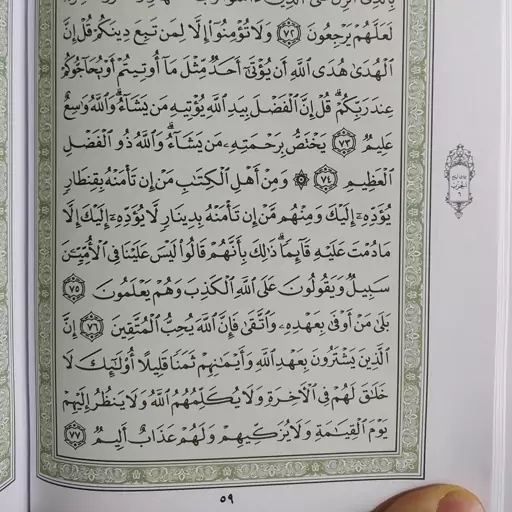 لَعَلَّهُمْ يَرْجِعُونَ ٧٢ وَلَا تُؤْمِنُوٓا۟ إِلَّا لِمَن تَبِعَ دِينَكُمْ قُلْ إِنَّ
ٱلْهُدَىٰ هُدَى ٱللَّهِ أَن يُؤْتَىٰٓ أَحَدٌ مِّثْلَ مَآ أُوتِيتُمْ أَوْ يُحَآجُّوكُمْ
عِندَ رَبِّكُمْ ۗ قُلْ إِنَّ ٱلْفَضْلَ بِيَدِ ٱللَّهِ يُؤْتِيهِ مَن يَشَآءُ ۗ وَٱللَّهُ وَٰسِعٌ
عَلِيمٌ ٧٣ يَخْتَصُّ بِرَحْمَتِهِۦ مَن يَشَآءُ ۗ وَٱللَّهُ ذُو ٱلْفَضْلِ
ٱلْعَظِيمِ ٧٤ ۞ وَمِنْ أَهْلِ ٱلْكِتَٰبِ مَنْ إِن تَأْمَنْهُ بِقِنطَارٍ
يُؤَدِّهِۦٓ إِلَيْكَ وَمِنْهُم مَّنْ إِن تَأْمَنْهُ بِدِينَارٍ لَّا يُؤَدِّهِۦٓ إِلَيْكَ إِلَّا
مَا دُمْتَ عَلَيْهِ قَآئِمًا ۗ ذَٰلِكَ بِأَنَّهُمْ قَالُوا۟ لَيْسَ عَلَيْنَا فِى ٱلْأُمِّيِّـۧنَ
سَبِيلٌ وَيَقُولُونَ عَلَى ٱللَّهِ ٱلْكَذِبَ وَهُمْ يَعْلَمُونَ ٧٥
بَلَىٰ مَنْ أَوْفَىٰ بِعَهْدِهِۦ وَٱتَّقَىٰ فَإِنَّ ٱللَّهَ يُحِبُّ ٱلْمُتَّقِينَ ٧٦ إِنَّ
ٱلَّذِينَ يَشْتَرُونَ بِعَهْدِ ٱللَّهِ وَأَيْمَٰنِهِمْ ثَمَنًا قَلِيلًا أُو۟لَٰٓئِكَ لَا
خَلَٰقَ لَهُمْ فِى ٱلْـَٔاخِرَةِ وَلَا يُكَلِّمُهُمُ ٱللَّهُ وَلَا يَنظُرُ إِلَيْهِمْ
يَوْمَ ٱلْقِيَٰمَةِ وَلَا يُزَكِّيهِمْ وَلَهُمْ عَذَابٌ أَلِيمٌ ٧٧
٥٩